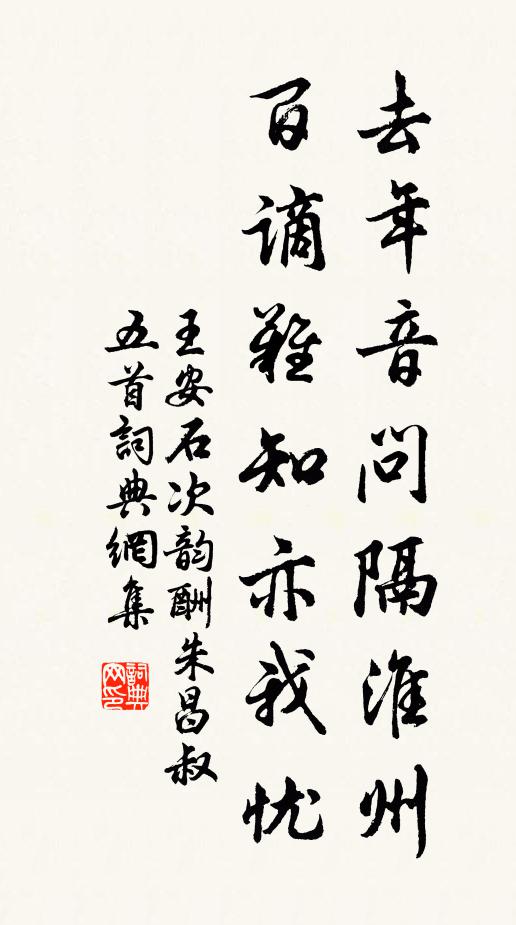 去年音問隔淮州
百謫難知亦我忧
王安石次韵酬朱昌叔
五首詞典網集
詞典
网印